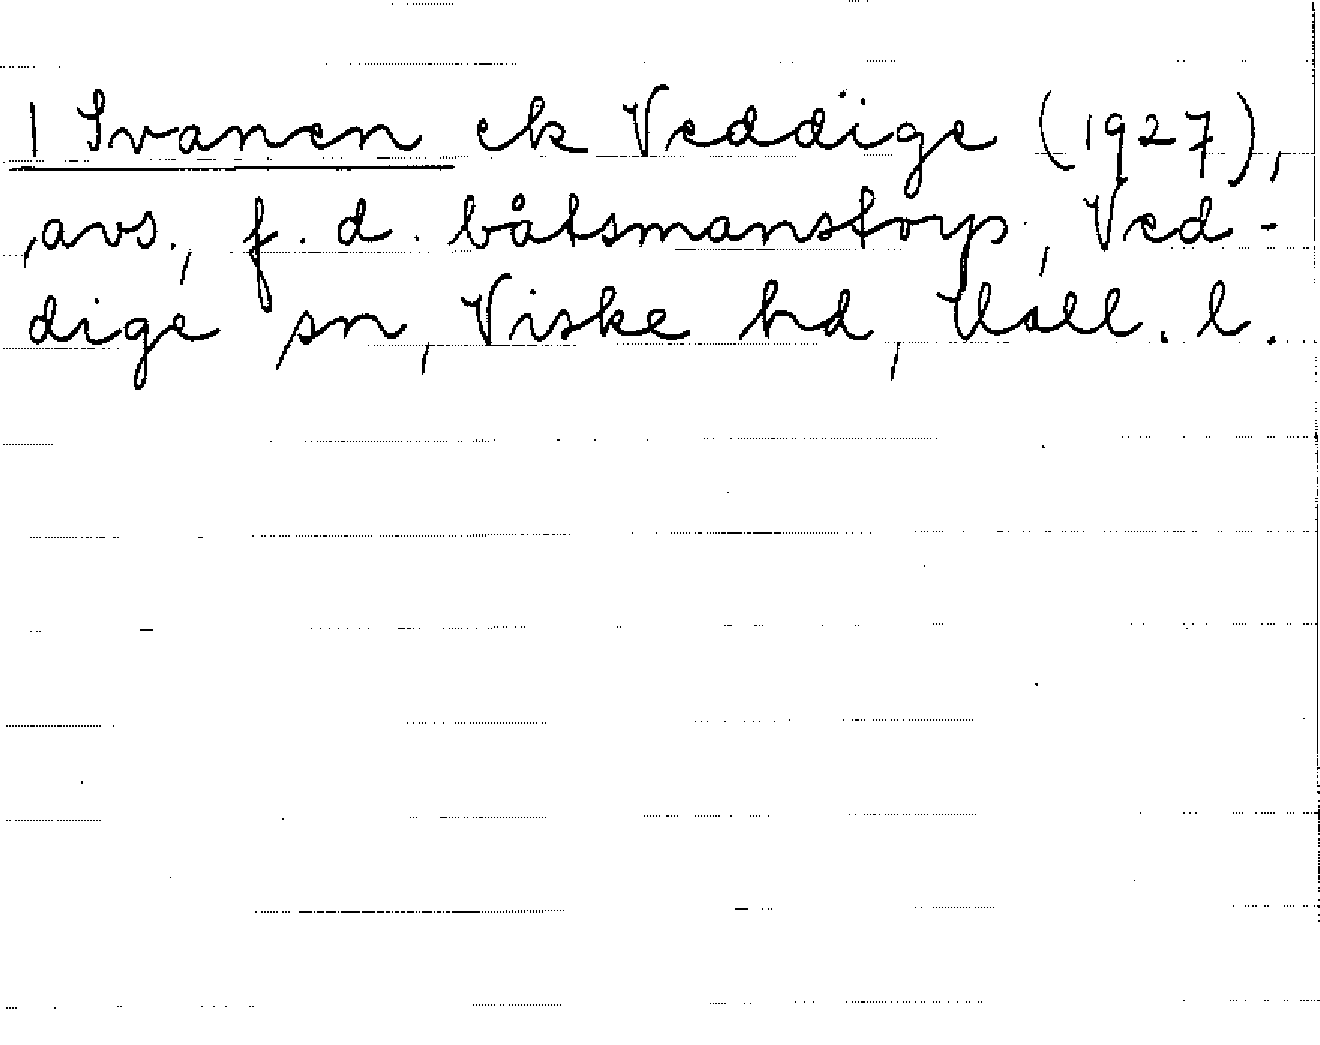 1 Svanen ek Veddige (1927),
avs., f. d. båtsmanstorp, Ved-
dige sn, Viske hd, Hall. l.